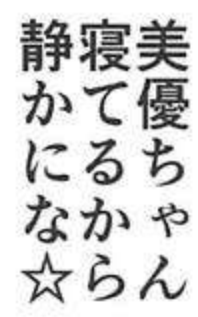 美優ちゃん
寝てるから
静かにな☆